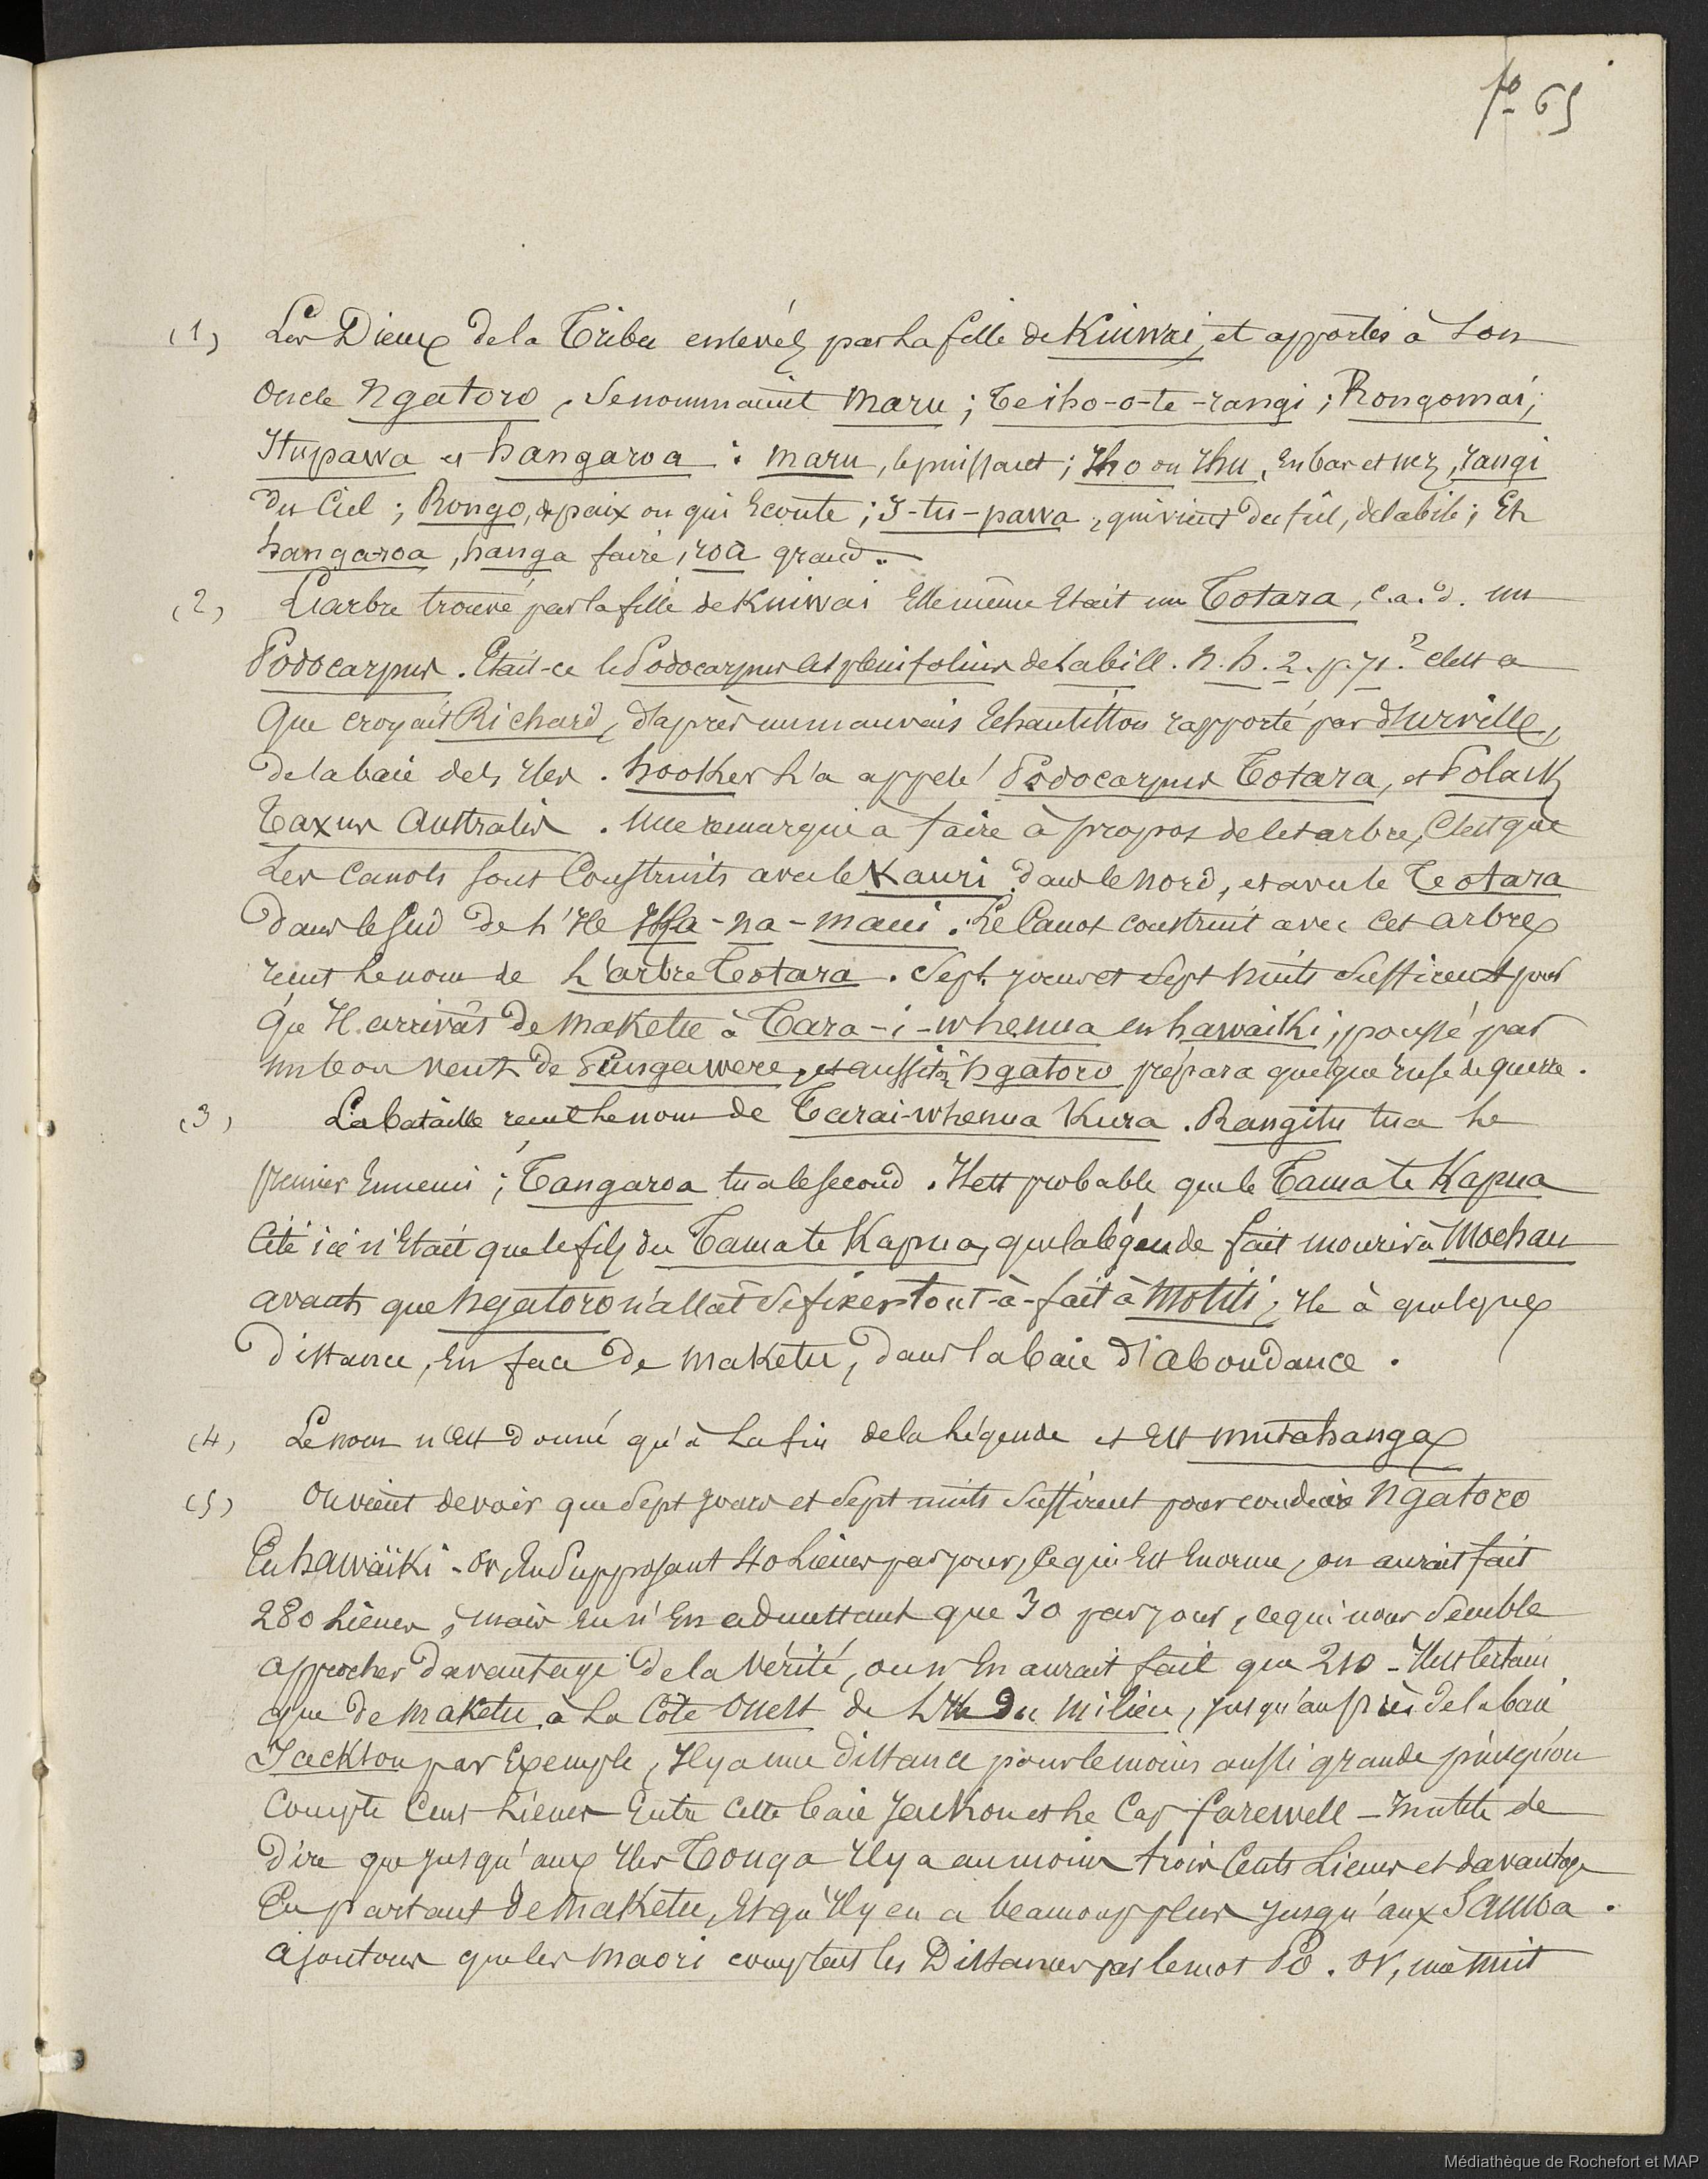 fo 65
(1) Les Dieux de la Tribu enlevés par la fille de Kuiwai, et apportés à son
oncle Ngatoro, se nommaient Maru ; Te iho-o-te-rangi ; Rongomai ;
Itupawa et hangaroa : maru, le puissant ; Iho ou Ihu, en bas et nez, rangi
du Ciel ; Rongo, paix ou qui Ecoute ; I-tu-pawa, qui vient du fiel, de la bile ; Et
hangaroa, hanga faire, roa grand.
(2) L'arbre trouvé par la fille de Kuiwai Elle même Etait un Totara, c.a.d. un
Podocarpus. Etait-ce le Podocarpus de Labill. n. h. 2. p. 71. ? c'est ce
Que croyait Richard, d'après un mauvais Echantillon rapporté par d'urville,
de la baie des Iles. hooker l'a appelé Podocarpus Totara, et Polack
Taxus Australis. Une remarque à faire à propos de cet arbre, C'est que
Les Canots sont Construits avec le Kauri dans le nord, et avec le Totara
dans le Sud de l'Ile Ika-na-maui. Le Canot construit avec cet arbre
reçut le nom de L'arbre Totara. Sept jours et sept nuits suffirent pour
qu'Il arrivât de maketu à Tara-i-whenua en hawaiki, poussé par
un bon vent de Pungawere, et aussitôt ngatoro prépara quelque ruse de guerre.
(3) La bataille reçut le nom de Tarai-whenua Kura. Rangitu tua le
premier Ennemi ; Tangaroa tua le second. Il est probable que le Tama te Kapua
Cité ici n'Etait que le fils du Tama te Kapua, que la légende fait mourir à Moehau
avant que Ngatoro n'allât se fixer tout-à-fait à Motiti, Ile à quelque
distance, En face de Maketu, dans la baie d'abondance.
(4) Le nom n'est donné qu'à la fin de la légende et Est mutahanga
(5) On vient de voir que sept jours et sept nuits suffirent pour conduire Ngatoro
En hawaïki. Or, En supposant 40 Lieues par jour, ce qui Est Enorme, on aurait fait
280 Lieues ; mais en n'En admettant que 30 par jour, ce qui nous semble
approcher davantage de la vérité, on n'En aurait fait que 210 - Il est certain
que de maketu à La Côte Ouest de L'Ile du Milieu, jusqu'auprès de la baie
Jackson par Exemple, Il y a une distance pour le moins aussi grande puisqu'on
Compte Cent Lieues Entre Cette baie Jackson et le Cap farewell - Inutile de
dire que jusqu'aux Iles Tonga Il y a au moins trois Cents Lieues et davantage
En partant de Maketu, Et qu'Il y en a beaucoup plus jusqu'aux Samoa.
ajoutons que les Maori comptent les Distances par le mot Po. Or, une nuit
Médiathèque de Rochefort et MAP